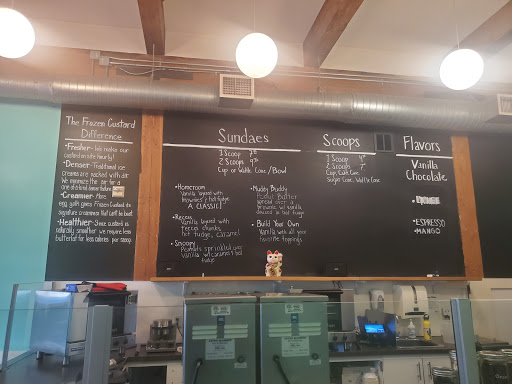 The Frozen Custard
Difference
• Fresher - We make our
custard on site hourly!
• Denser - Traditional ice
creams are packed with air.
We minimize the air for a
• Creamier - More
egg yolk gives Frozen Custard its
signature creaminess that can't be beat
• Healthier - Since custard is
naturally smoother we require less
butterfat for less calories per scoop.
Sundaes
1 Scoop
2 Scoops
Cup or Waffle Cone/Bowl
• Homeroom
Vanilla layered with
brownies + hot fudge.
A CLASSIC!
• Recess
Vanilla layered with
reeces chunks,
hot fudge, caramel
• Snoopy
Peanuts sprinkled over
vanilla w/caramel + hot
fudge
• Muddy Buddy
Peanut Butter
spread over a
brownie w/ vanilla
drizzled in hot fudge
• Build Your Own
Vanilla with all your
favorite toppings
Scoops
1 Scoop
2 Scoops
Cup, Cake Cone,
Sugar Cone, Waffle Cone
Flavors
Vanilla
Chocolate
• ESPRESSO
• MANGO